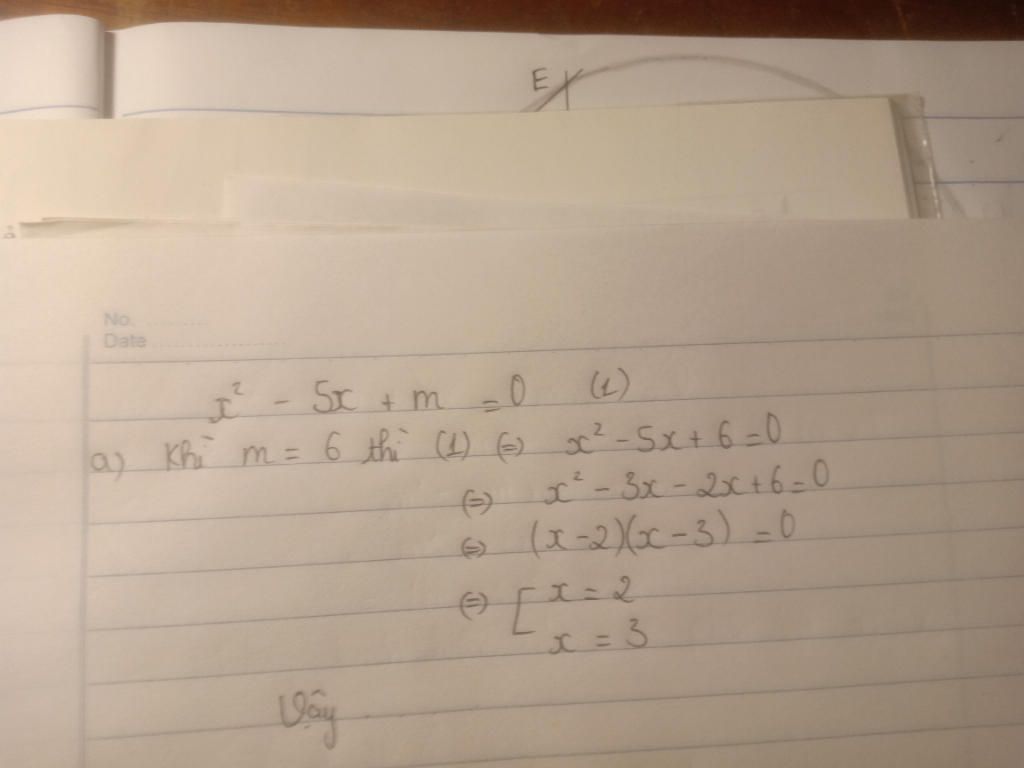 E
No. ..........
Date ......................
x² - 5x + m = 0 (1)
a) Khi m = 6 thì (1) (=) x² - 5x + 6 = 0
(=) x² - 3x - 2x + 6 = 0
(=) (x - 2)(x - 3) = 0
(=) [ x = 2
x = 3
Vậy